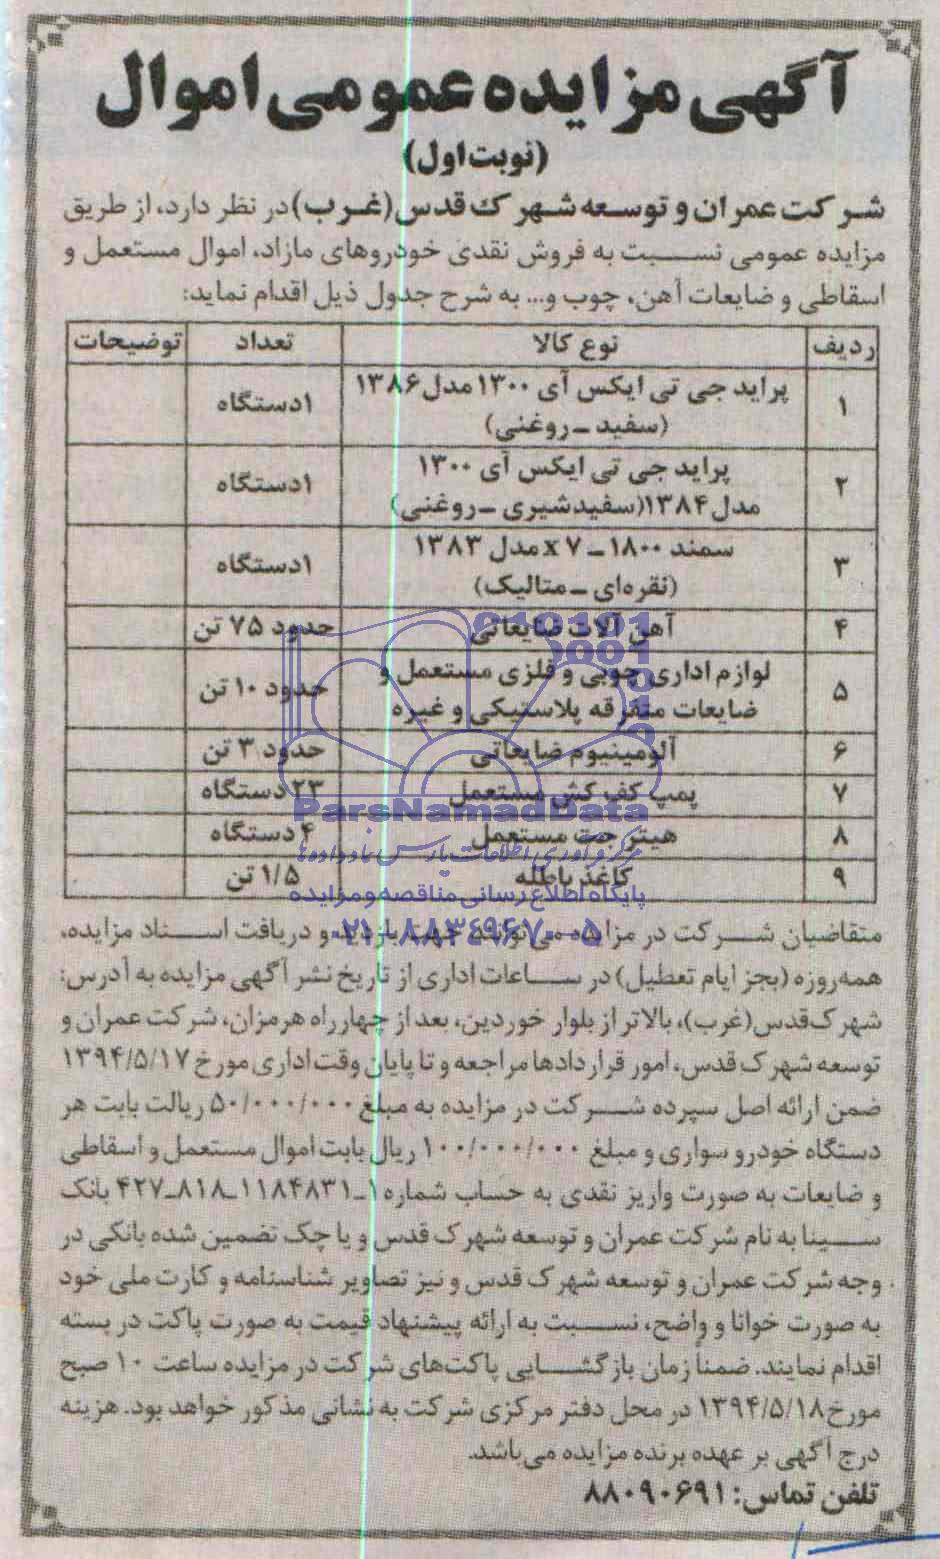 آگهی مزایده عمومی اموال
(نوبت اول)
شرکت عمران و توسعه شهرک قدس(غرب)در نظر دارد، از طریق
مزایده عمومی نسبت به فروش نقدی خودروهای مازاد، اموال مستعمل و
اسقاطی و ضایعات آهن، چوب و... به شرح جدول ذیل اقدام نماید:
ردیف نوع کالا تعداد توضیحات
۱ پراید جی تی ایکس آی ۱۳۰۰ مدل ۱۳۸۶ ۱دستگاه
(سفید ـ روغنی)
۲ پراید جی تی ایکس آی ۱۳۰۰ ۱دستگاه
مدل ۱۳۸۴(سفیدشیری ـ روغنی)
۳ سمند ۱۸۰۰ ـ x۷ مدل ۱۳۸۳ ۱دستگاه
(نقره‌ای ـ متالیک)
۴ آهن آلات ضایعاتی حدود ۷۵ تن
۵ لوازم اداری چوبی و فلزی مستعمل و حدود ۱۰ تن
ضایعات متفرقه پلاستیکی و غیره
۶ آلومینیوم ضایعاتی حدود ۳ تن
۷ پمپ کف کش مستعمل ۲۳ دستگاه
۸ هیتر جت مستعمل ۴ دستگاه
۹ کاغذ باطله ۱/۵ تن
ParsNamadData
پایگاه اطلاع رسانی مناقصه و مزایده
۰۲۱-۸۸۳۴۹۶۷۰-۵
متقاضیان شرکت در مزایده می‌توانند جهت بازدید و دریافت اسناد مزایده،
همه‌روزه (بجز ایام تعطیل) در ساعات اداری از تاریخ نشر آگهی مزایده به آدرس:
شهرک‌قدس(غرب)، بالاتر از بلوار خوردین، بعد از چهارراه هرمزان، شرکت عمران و
توسعه شهرک قدس، امور قراردادها مراجعه و تا پایان وقت اداری مورخ ۱۳۹۴/۵/۱۷
ضمن ارائه اصل سپرده شرکت در مزایده به مبلغ ۵۰/۰۰۰/۰۰۰ ریالت بابت هر
دستگاه خودرو سواری و مبلغ ۱۰۰/۰۰۰/۰۰۰ ریال بابت اموال مستعمل و اسقاطی
و ضایعات به صورت واریز نقدی به حساب شماره ۱ـ۱۱۸۴۸۳۱ـ۸۱۸ـ۴۲۷ بانک
سینا به نام شرکت عمران و توسعه شهرک قدس و یا چک تضمین شده بانکی در
وجه شرکت عمران و توسعه شهرک قدس و نیز تصاویر شناسنامه و کارت ملی خود
به صورت خوانا و واضح، نسبت به ارائه پیشنهاد قیمت به صورت پاکت در بسته
اقدام نمایند. ضمناً زمان بازگشایی پاکت‌های شرکت در مزایده ساعت ۱۰ صبح
مورخ ۱۳۹۴/۵/۱۸ در محل دفتر مرکزی شرکت به نشانی مذکور خواهد بود. هزینه
درج آگهی بر عهده برنده مزایده می‌باشد.
تلفن تماس: ۸۸۰۹۰۶۹۱